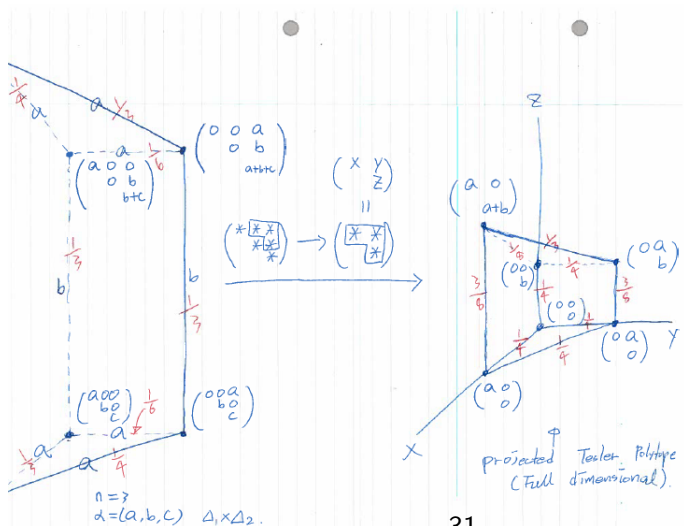 1/4
a
a 1/3
a 1/6
( 0 0 a
0 b
a+b+c )
( a 0 0
0 b
b+c )
1/3
b
b
1/3
( a 0 0
b 0
c )
1/6
a
( 0 0 a
b 0
c )
1/3
a
a
1/4
n=3
α=(a, b, c) Δ₁×Δ₂.
( x y
z )
||
( * * *
* *
* ) → ( * *
* )
Z
( a 0
a+b )
1/8
1/3
( 0 0
b )
1/4
( 0 a
b )
3/8
1/4
3/8
( 0 0
0 )
1/4
1/4
1/4
( 0 a
0 )
Y
( a 0
0 )
X
projected Tesler Polytope
(Full dimensional).
31